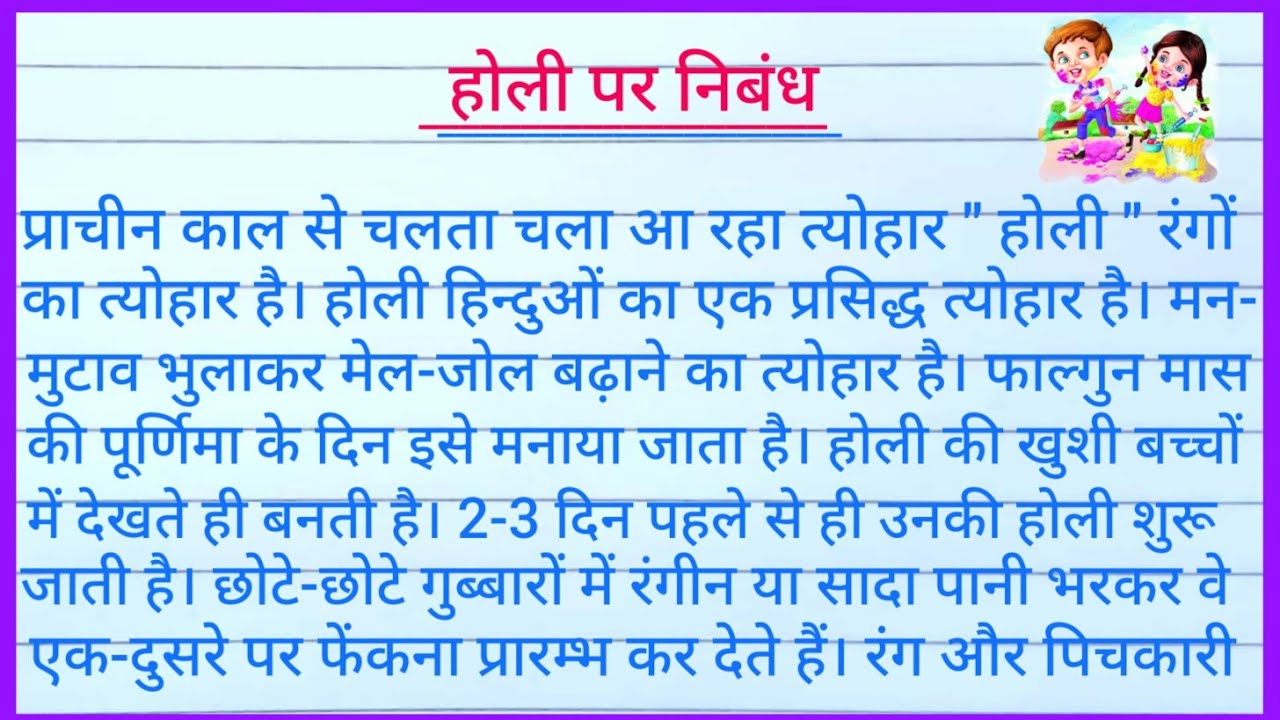 होली पर निबंध
प्राचीन काल से चलता चला आ रहा त्योहार " होली " रंगों
का त्योहार है। होली हिन्दुओं का एक प्रसिद्ध त्योहार है। मन-
मुटाव भुलाकर मेल-जोल बढ़ाने का त्योहार है। फाल्गुन मास
की पूर्णिमा के दिन इसे मनाया जाता है। होली की खुशी बच्चों
में देखते ही बनती है। 2-3 दिन पहले से ही उनकी होली शुरू
जाती है। छोटे-छोटे गुब्बारों में रंगीन या सादा पानी भरकर वे
एक-दुसरे पर फेंकना प्रारम्भ कर देते हैं। रंग और पिचकारी